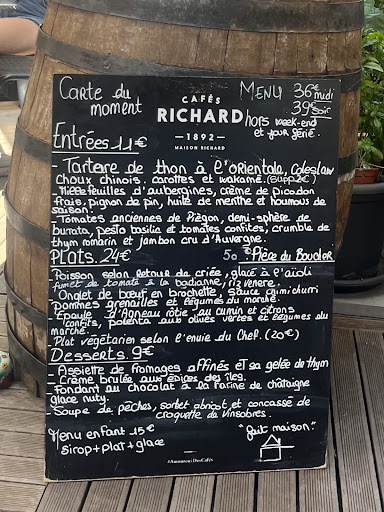 Carte du moment
CAFÉS
RICHARD
—1892—
MAISON RICHARD
MENU 36€ midi
39€ soir
hors week-end
et jour férié.
Entrées 11€
- Tartare de thon à l'orientale, Coleslaw
Choux chinois, carottes et wakamé. (supp 2€)
- Millefeuilles d'aubergines, crème de Picodon
frais, pignon de pin, huile de menthe et houmous de
saison.
- Tomates anciennes de Piégon, demi-sphère de
burrata, pesto basilic et tomates confites, crumble de
thym romarin et jambon cru d'Auvergne.
Plats. 24€
50€ Pièce du Boucher
- Poisson selon retour de criée, glacé à l'aïoli
fumet de tomate à la badiane, riz venere.
- Onglet de bœuf en brochette, sauce chimichurri
pommes grenailles et légumes du marché.
- Epaule d'Agneau rôtie au cumin et citrons
confits, polenta aux olives vertes et légumes du
marché.
Plat végétarien selon l'envie du Chef. (20€)
Desserts. 9€
- Assiette de fromages affinés et sa gelée de thym
- Crème brulée aux épices des îles.
- Fondant au chocolat à la farine de châtaigne
glace nuty.
- Soupe de pêches, sorbet abricot et concassé de
croquette de Vinsobres.
Menu enfant 15€
sirop+plat+glace
"fait maison."
#AmoureuxDesCafés